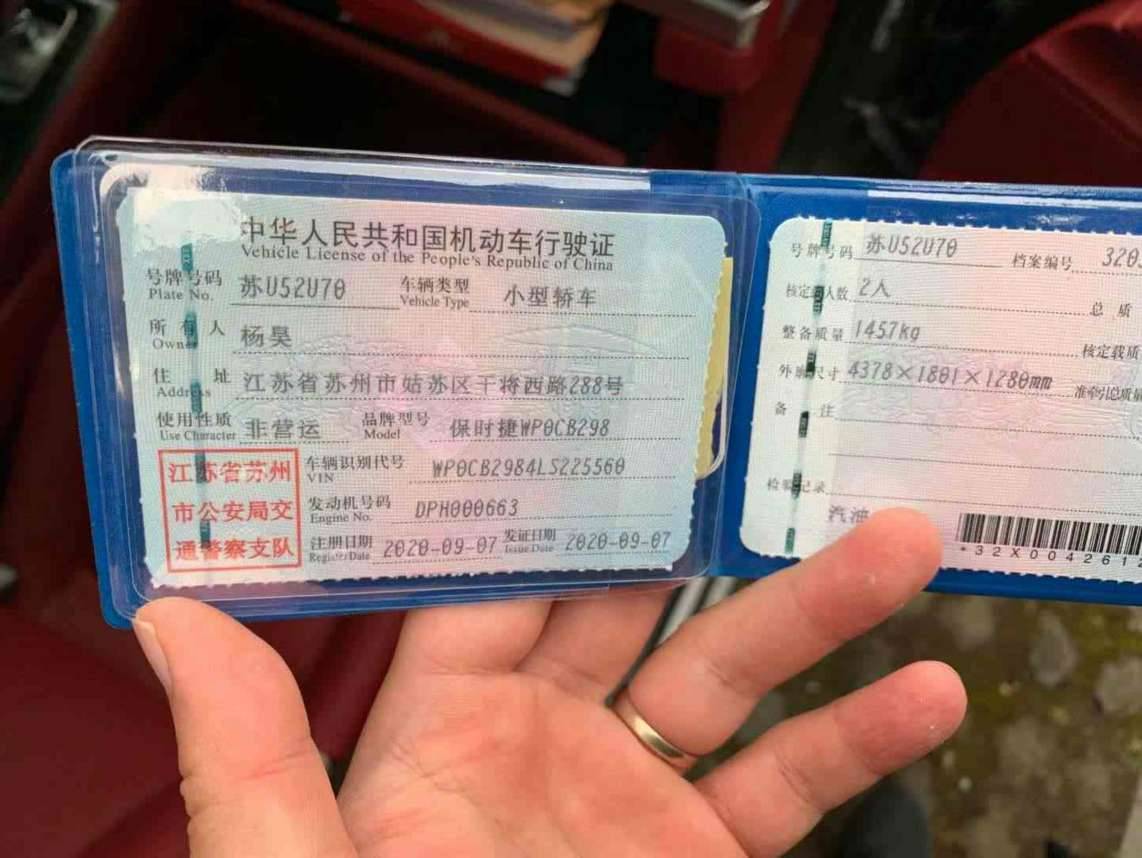 中华人民共和国机动车行驶证
Vehicle License of the People's Republic of China
号牌号码 苏U52U70 车辆类型 小型轿车
Plate No. Vehicle Type
所有人 杨昊
Owner
住址 江苏省苏州市姑苏区干将西路288号
Address
使用性质 非营运 品牌型号 保时捷WP0CB298
Use Character Model
江苏省苏州
市公安局交
通警察支队
车辆识别代号 WP0CB2984LS225560
VIN
发动机号码 DPH000663
Engine No.
注册日期 2020-09-07 发证日期 2020-09-07
Register Date Issue Date
号牌号码 苏U52U70 档案编号 3205
核定载人数 2人
总质
整备质量 1457kg 核定载质
外廓尺寸 4378×1801×1280mm 准牵引总质量
备注
检验记录
汽油
*32X0042612